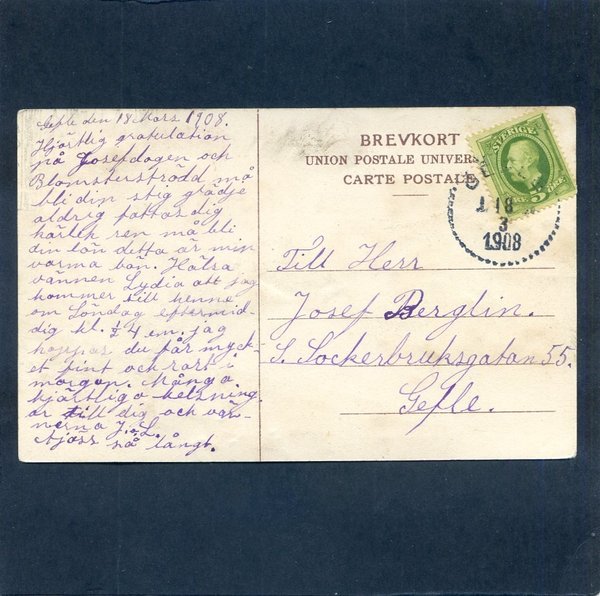 Gefle den 18 Mars 1908.
Hjärtlig gratulation
på Josefdagen och
Blomsterströdd må
bli din stig glädje
aldrig fattas dig
kärlek ren må bli
din lön detta är min
varma bön. Hälsa
vännen Lydia att jag
kommer till henne
om Söndag eftermid-
dig kl. ½ 4 em. jag
hoppas du får myck-
et fint och rart i
morgon. Många
hjärtliga helsning
ar till dig och vän-
nerna J. L.
Ajöss så långt.
BREVKORT
UNION POSTALE UNIVERS
CARTE POSTALE
SVERIGE
5
18
3
1908
Till Herr
Josef Berglin.
S. Sockerbruksgatan 55.
Gefle.